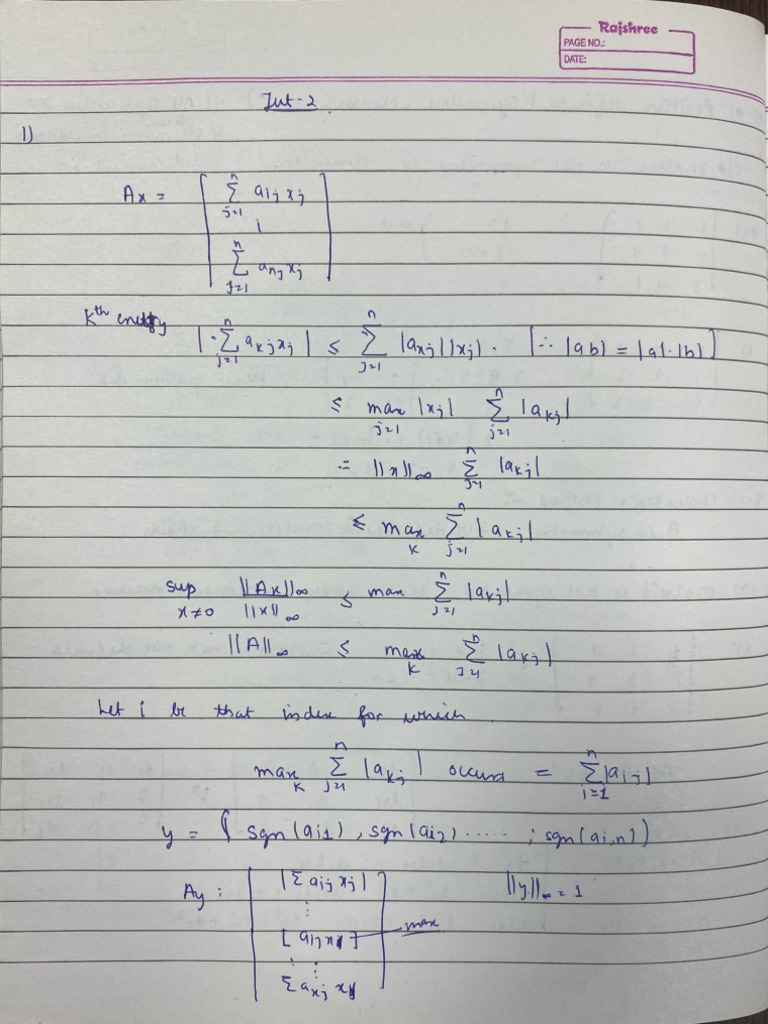 Rajshree
PAGE NO.:
DATE:
Tut-2
1)
Ax = [ ∑_{j=1}^{n} a_{1j} x_j
⋮
∑_{j=1}^{n} a_{nj} x_j ]
Kth entry | ∑_{j=1}^{n} a_{kj} x_j | ≤ ∑_{j=1}^{n} |a_{xj}| |x_j| . [∵ |ab| = |a|·|b|]
≤ max_{j=1} |x_j| ∑_{j=1}^{n} |a_{kj}|
= ||x||_∞ ∑_{j=1}^{n} |a_{kj}|
≤ max_K ∑_{j=1}^{n} |a_{kj}|
sup_{x≠0} ||Ax||_∞ / ||x||_∞ ≤ max ∑_{j=1}^{n} |a_{kj}|
||A||_∞ ≤ max_K ∑_{j=1}^{n} |a_{kj}|
Let i be that index for which
max_K ∑_{j=1}^{n} |a_{kj}| occurs = ∑_{i=1}^{n} |a_{ij}|
y = ( sgn(a_{i1}), sgn(a_{i2}) ..... ; sgn(a_{i,n}) )
Ay : [ |∑ a_{ij} x_j| ||y||_∞ = 1
⋮
[ a_{ij} x_j ] max
⋮
∑ a_{xj} x_j ]